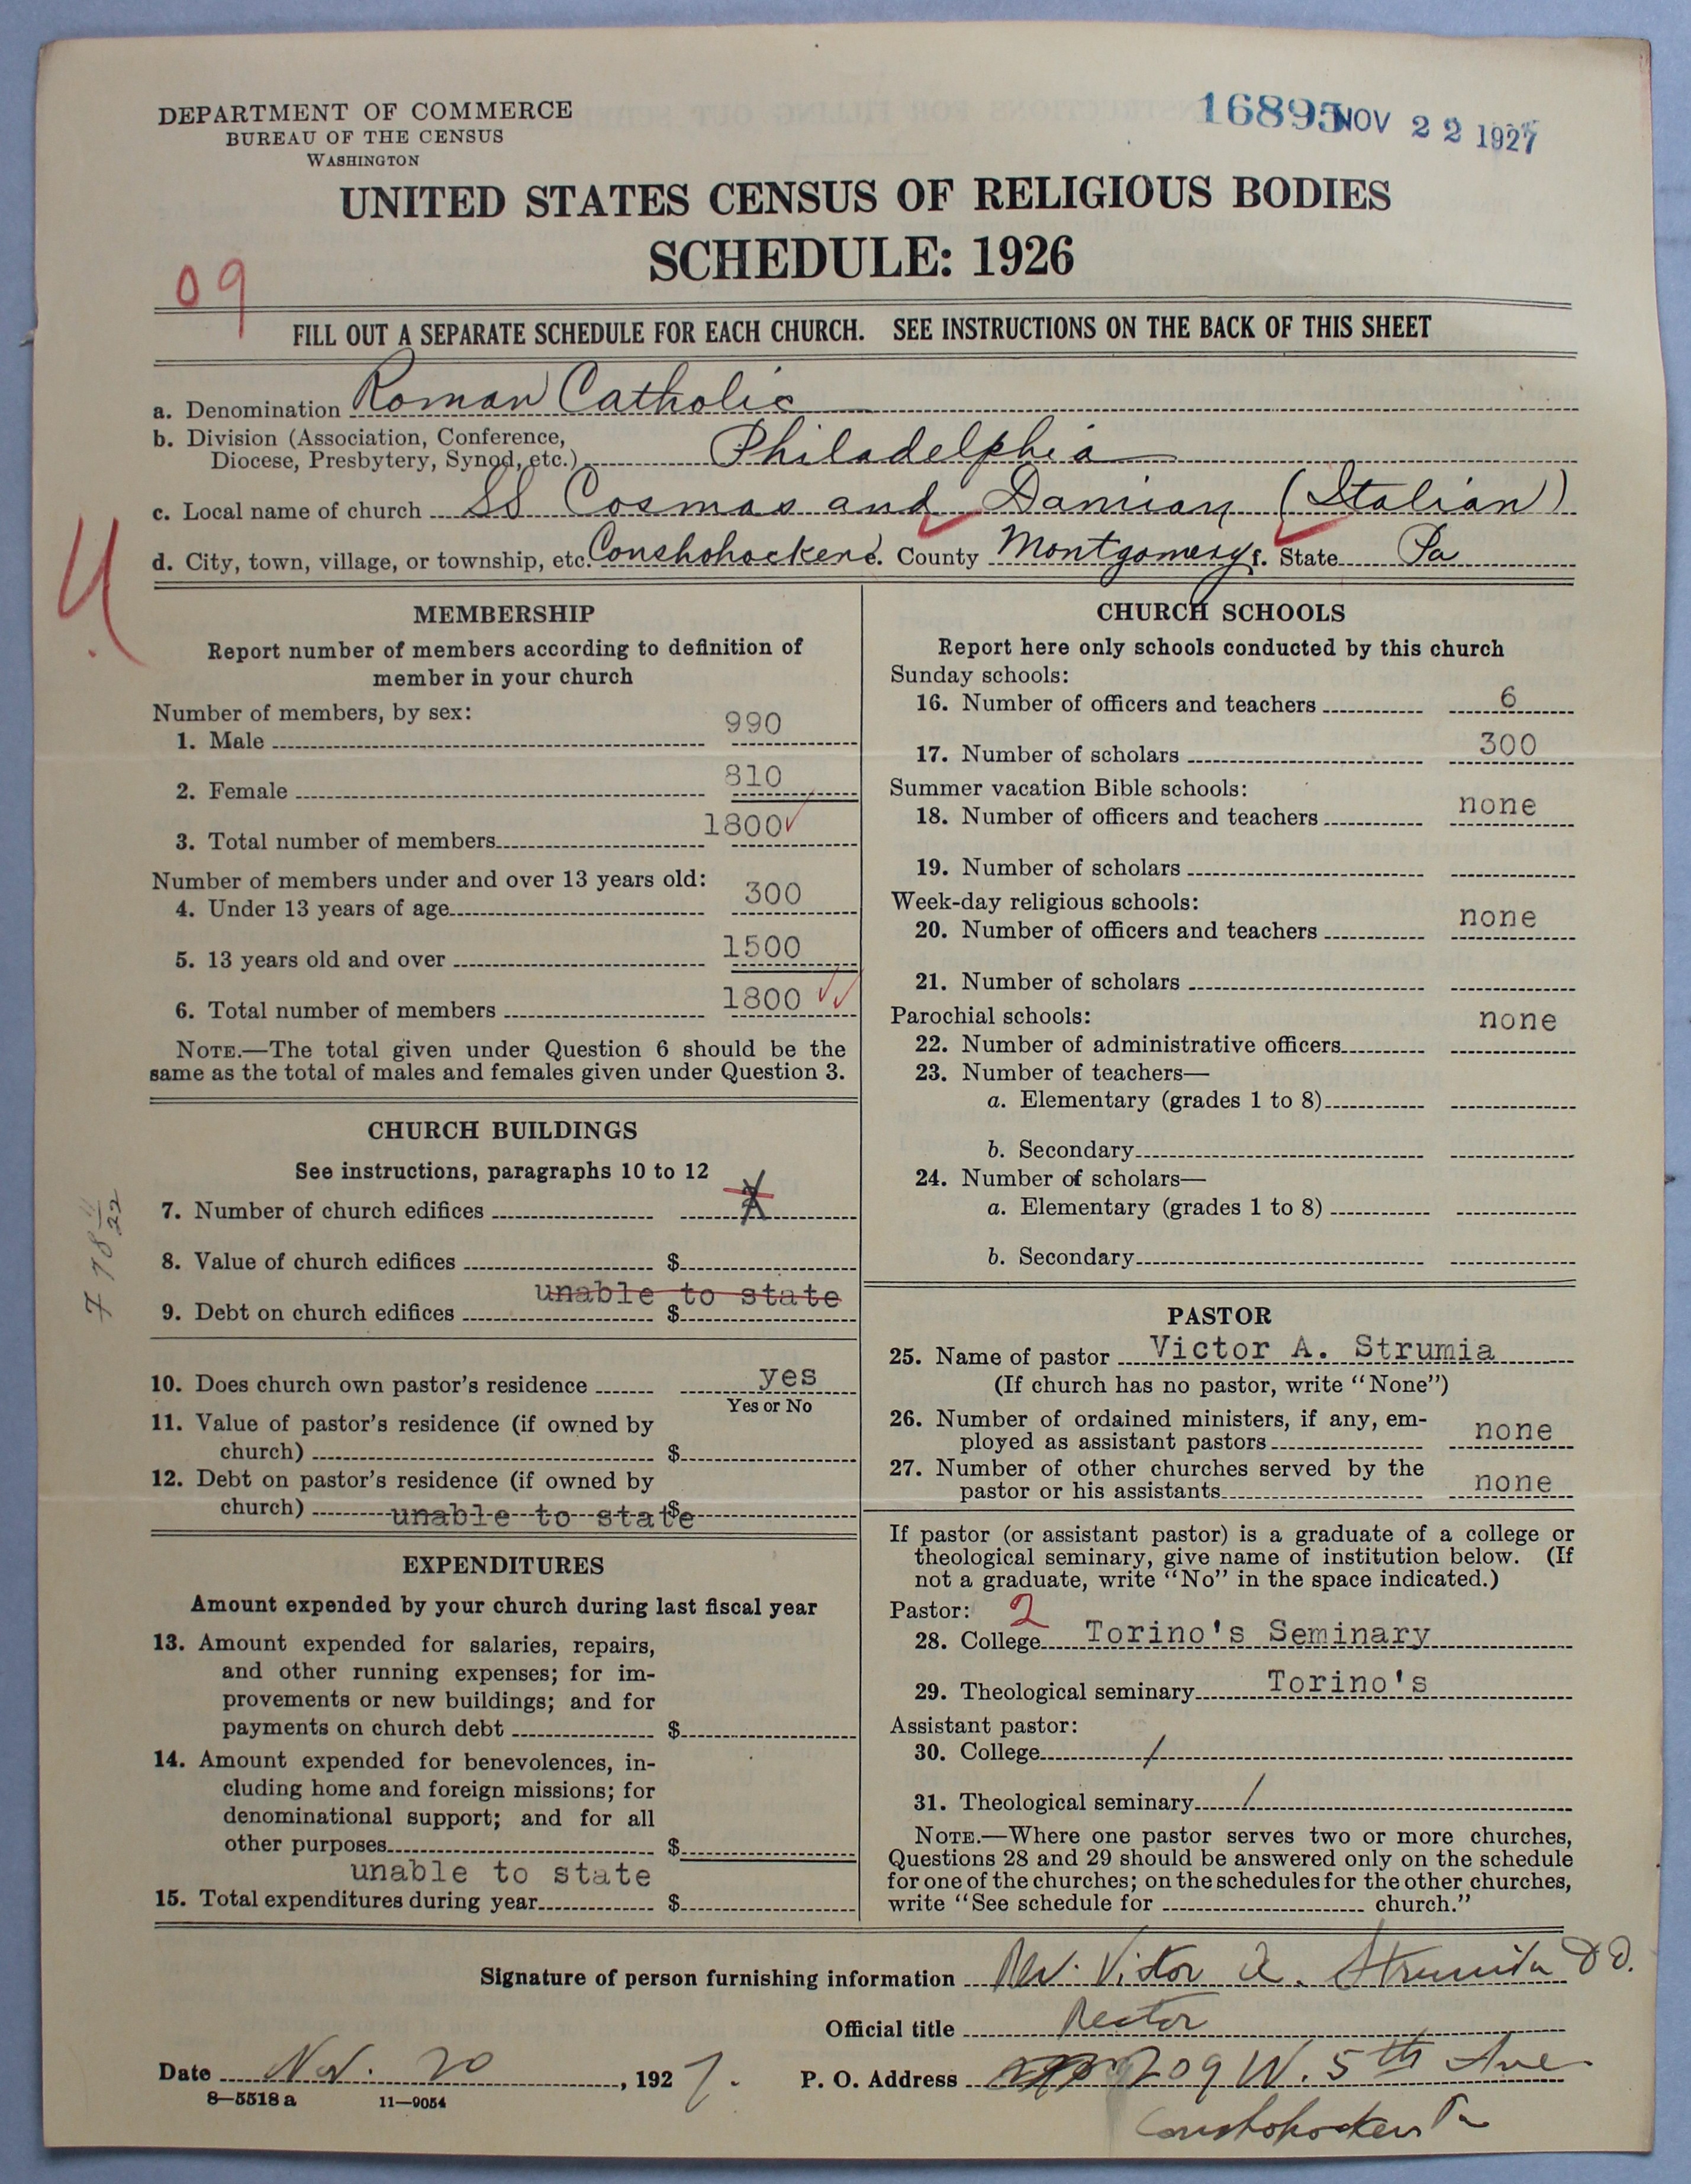 DEPARTMENT OF COMMERCE
BUREAU OF THE CENSUS
WASHINGTON
16895 NOV 22 1927
UNITED STATES CENSUS OF RELIGIOUS BODIES
SCHEDULE: 1926
09
FILL OUT A SEPARATE SCHEDULE FOR EACH CHURCH. SEE INSTRUCTIONS ON THE BACK OF THIS SHEET
a. Denomination Roman Catholic
b. Division (Association, Conference,
Diocese, Presbytery, Synod, etc.) Philadelphia
c. Local name of church SS Cosmas and Damian (Italian)
d. City, town, village, or township, etc. Conshohocken e. County Montgomery f. State Pa
MEMBERSHIP
Report number of members according to definition of
member in your church
Number of members, by sex:
1. Male 990
2. Female 810
3. Total number of members 1800
Number of members under and over 13 years old:
4. Under 13 years of age 300
5. 13 years old and over 1500
6. Total number of members 1800
NOTE.—The total given under Question 6 should be the
same as the total of males and females given under Question 3.
CHURCH BUILDINGS
See instructions, paragraphs 10 to 12
7. Number of church edifices
8. Value of church edifices $
unable to state
9. Debt on church edifices $
10. Does church own pastor's residence yes
Yes or No
11. Value of pastor's residence (if owned by
church) $
12. Debt on pastor's residence (if owned by
church) unable to state $
EXPENDITURES
Amount expended by your church during last fiscal year
13. Amount expended for salaries, repairs,
and other running expenses; for im-
provements or new buildings; and for
payments on church debt $
14. Amount expended for benevolences, in-
cluding home and foreign missions; for
denominational support; and for all
other purposes $
unable to state
15. Total expenditures during year $
CHURCH SCHOOLS
Report here only schools conducted by this church
Sunday schools:
16. Number of officers and teachers 6
17. Number of scholars 300
Summer vacation Bible schools:
18. Number of officers and teachers none
19. Number of scholars
Week-day religious schools:
20. Number of officers and teachers none
21. Number of scholars
Parochial schools: none
22. Number of administrative officers
23. Number of teachers—
a. Elementary (grades 1 to 8)
b. Secondary
24. Number of scholars—
a. Elementary (grades 1 to 8)
b. Secondary
PASTOR
25. Name of pastor Victor A. Strumia
(If church has no pastor, write "None")
26. Number of ordained ministers, if any, em-
ployed as assistant pastors none
27. Number of other churches served by the
pastor or his assistants none
If pastor (or assistant pastor) is a graduate of a college or
theological seminary, give name of institution below. (If
not a graduate, write "No" in the space indicated.)
Pastor: 2
28. College Torino's Seminary
29. Theological seminary Torino's
Assistant pastor:
30. College /
31. Theological seminary /
NOTE.—Where one pastor serves two or more churches,
Questions 28 and 29 should be answered only on the schedule
for one of the churches; on the schedules for the other churches,
write "See schedule for church."
Signature of person furnishing information Rev. Victor A. Strumia DD.
Official title Rector
Date Nov. 20, 1927. P. O. Address 209 W. 5th Ave
8—5518a 11—9054
Conshohocken Pa